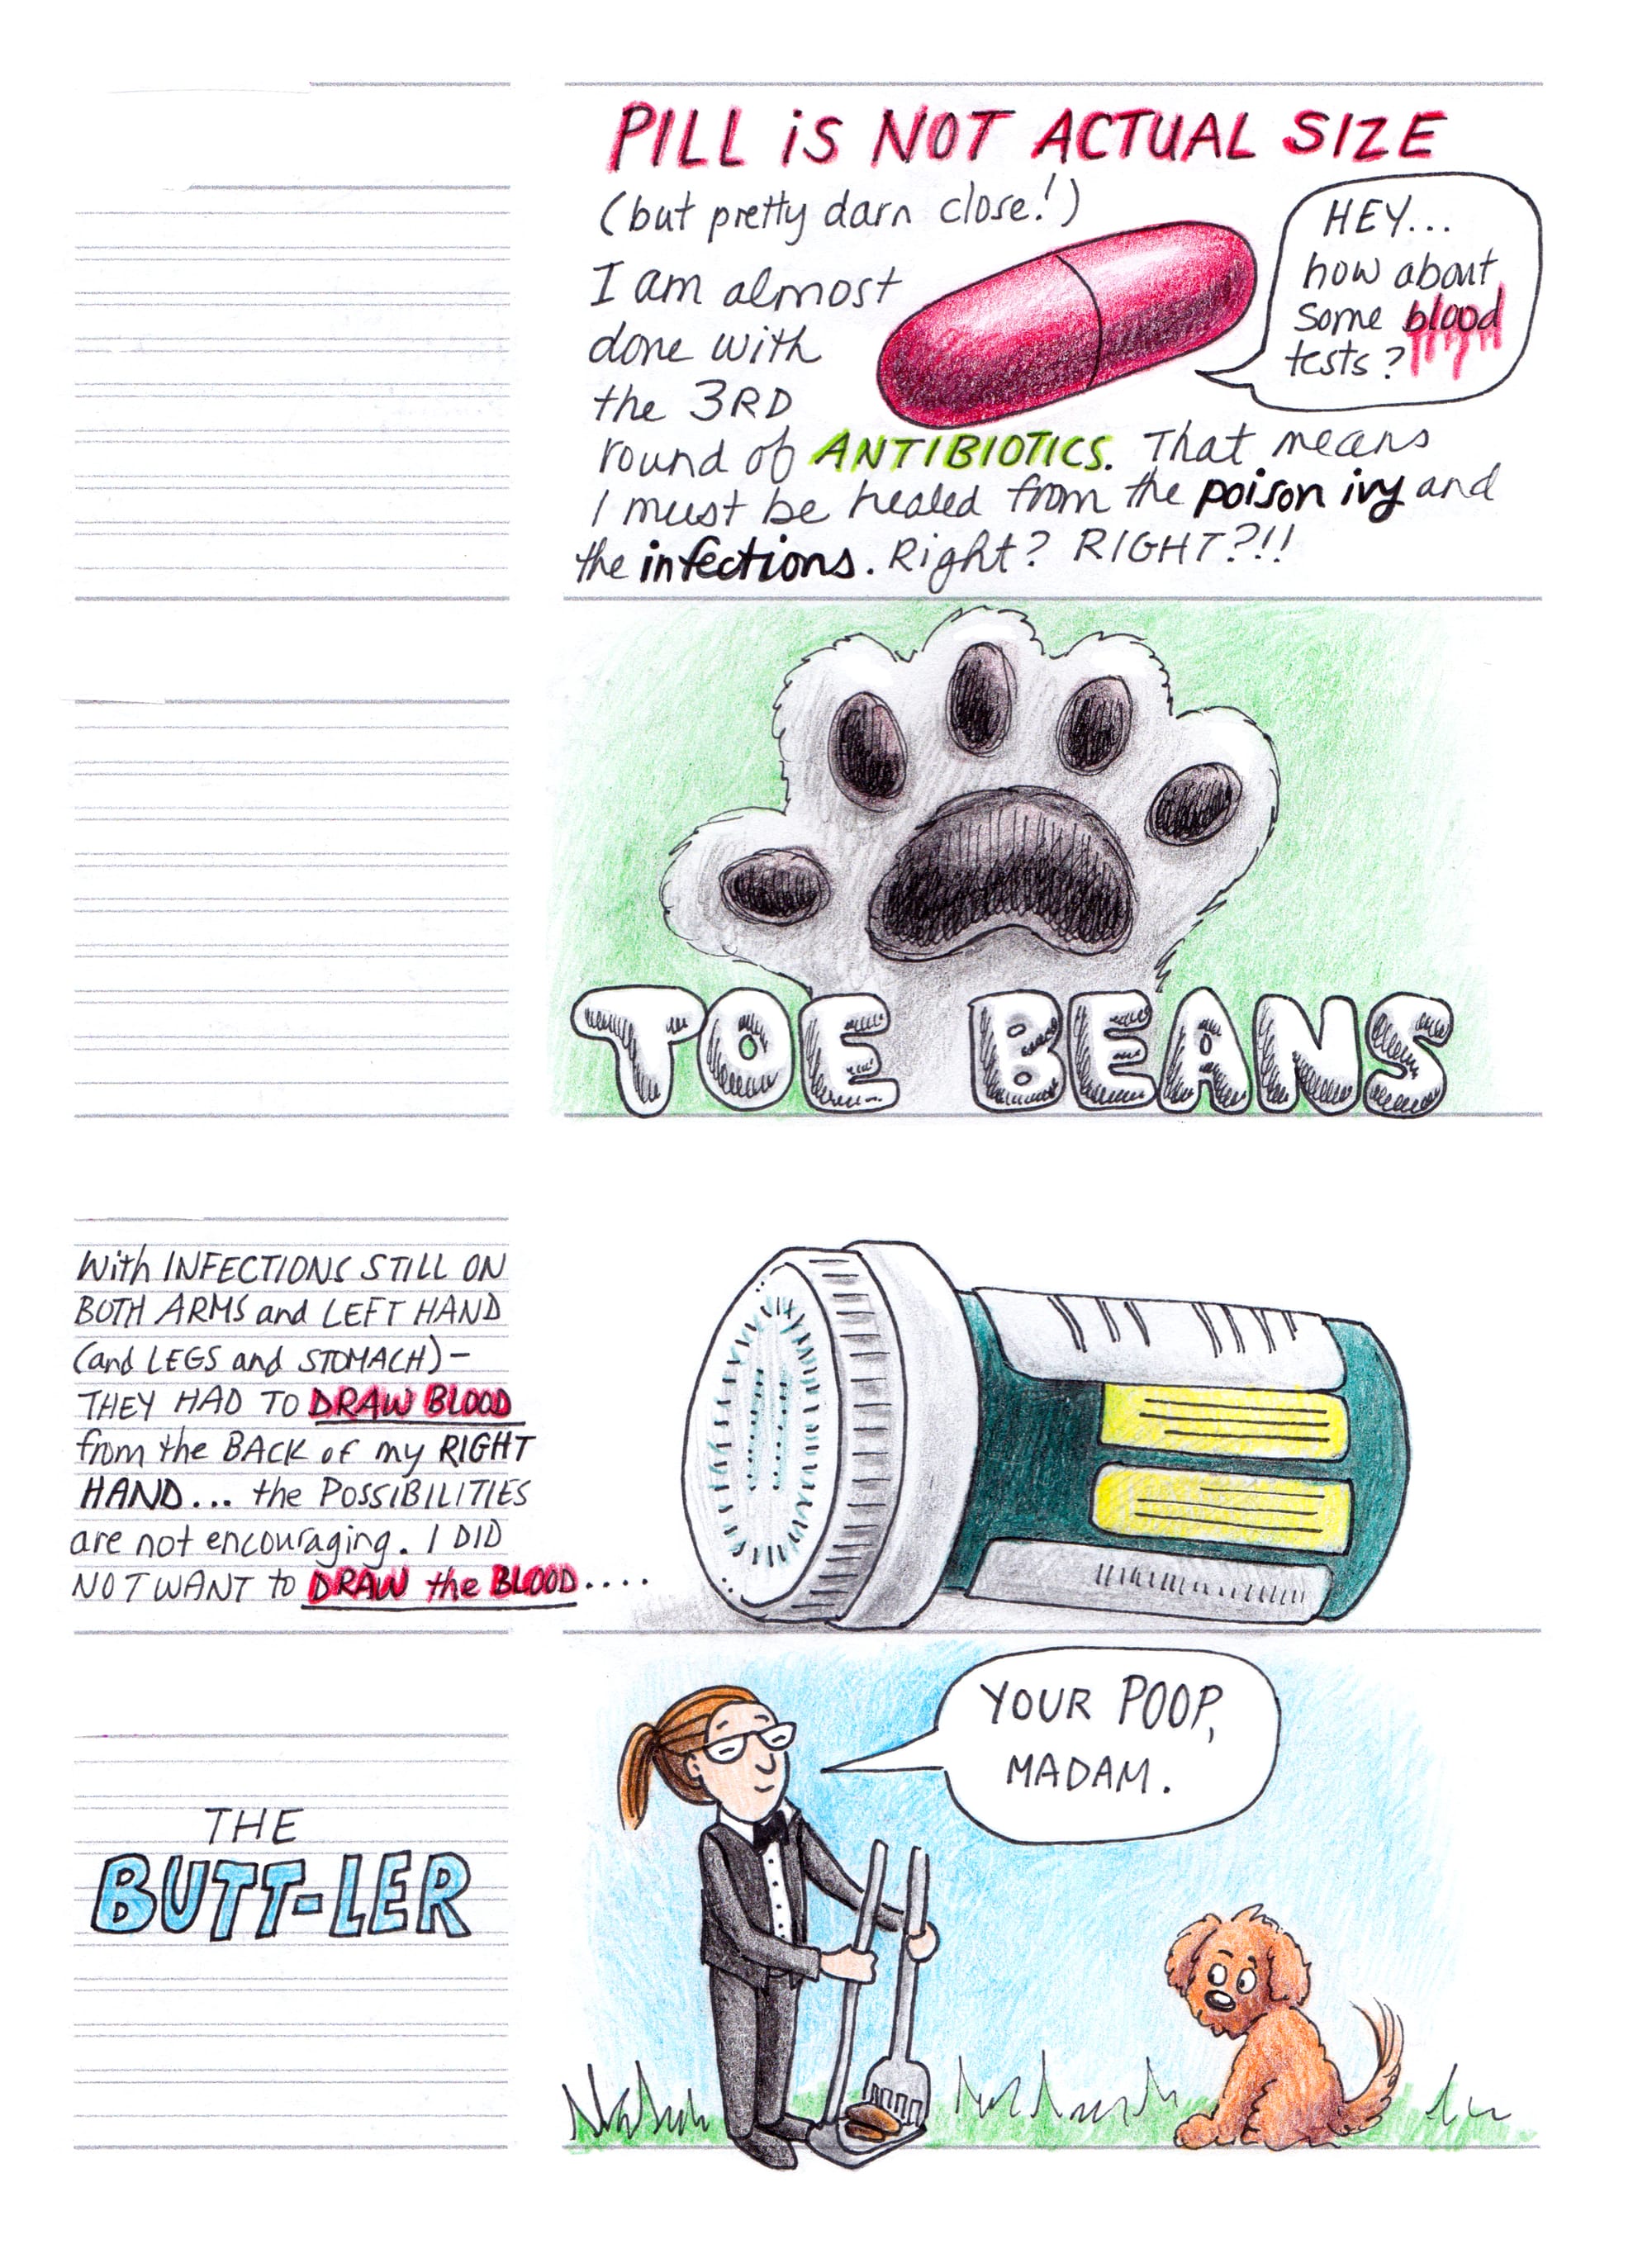 PILL iS NOT ACTUAL SIZE
(but pretty darn close!)
I am almost
done with
the 3RD
round of ANTIBIOTICS. That means
I must be healed from the poison ivy and
the infections. Right? RIGHT?!!
HEY...
how about
some blood
tests?
TOE BEANS
With INFECTIONS STILL ON
BOTH ARMS and LEFT HAND
(and LEGS and STOMACH)-
THEY HAD TO DRAW BLOOD
from the BACK of my RIGHT
HAND... the POSSIBILITIES
are not encouraging. I DID
NOT WANT to DRAW the BLOOD....
THE
BUTT-LER
YOUR POOP,
MADAM.